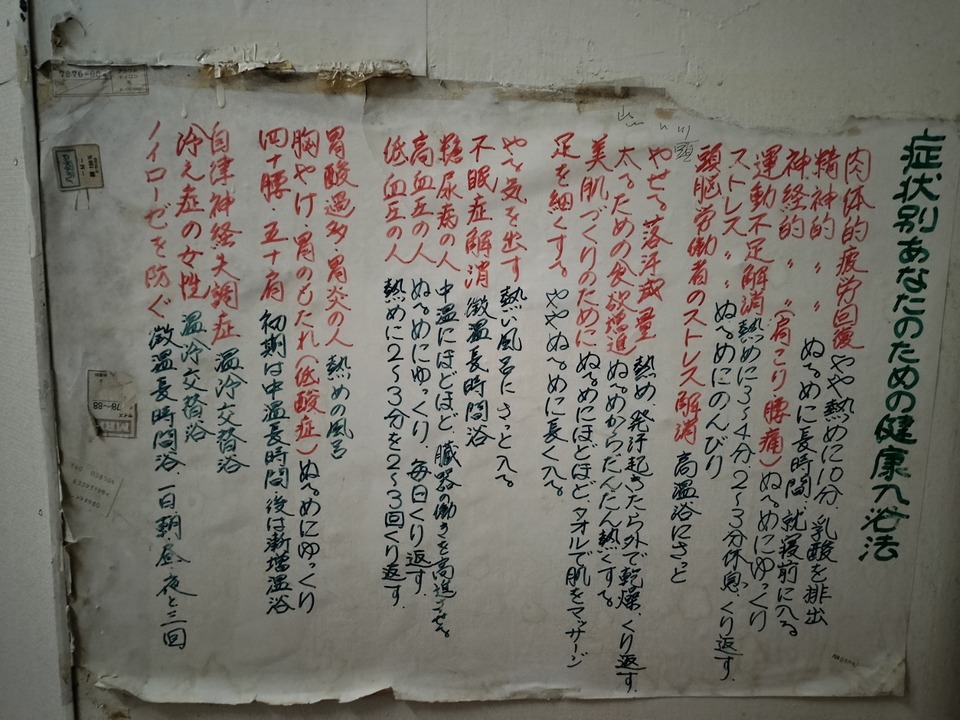 症状別あなたのための健康入浴法
肉体的疲労回復 やや熱めに10分、乳酸を排出
精神的 〃 ぬるめに長時間、就寝前に入る
神経的 〃 (肩こり 腰痛) ぬるめにゆっくり
運動不足解消 熱めに3〜4分、2〜3分休息、くり返す
ストレス 〃 ぬるめにのんびり
頭脳労働者のストレス解消 高温浴にさっと
やせる 落汗減量 熱め、発汗起きたら外で乾燥、くり返す
太るための食欲増進 ぬるめからだんだん熱くする
美肌づくりのために ぬるめにほどほど、タオルで肌をマッサージ
足を細くする ややぬるめに長く入る
やる気を出す 熱い風呂にさっと入る
不眠症解消 微温長時間浴
糖尿病の人 中温にほどほど、臓器の働きを高進させる
高血圧の人 ぬるめにゆっくり、毎日くり返す
低血圧の人 熱めに2〜3分を2〜3回くり返す
胃酸過多・胃炎の人 熱めの風呂
胸やけ・胃のもたれ(低酸症) ぬるめにゆっくり
四十腰・五十肩 初期は中温長時間 後は漸増温浴
自津神経失調症 温冷交替浴
冷え症の女性 温冷交替浴
ノイローゼを防ぐ 微温長時間浴、一日朝昼夜と三回